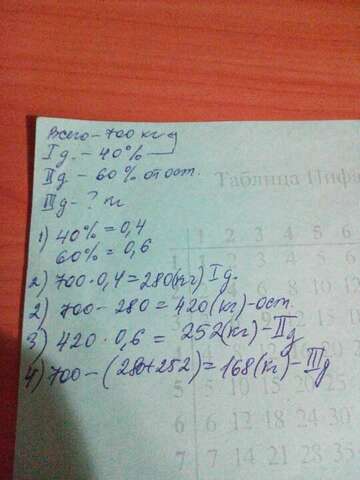 Всего - 700 кг
I д. - 40%
II д - 60% от ост.
III д - ? кг
1) 40% = 0,4
60% = 0,6
2) 700·0,4=280(кг) I д.
2) 700 - 280 = 420(кг)-ост.
3) 420·0,6= 252(кг)-II д
4) 700-(280+252)=168(кг)-III д
Таблица Пифаг
1 2 3 4 5 6
1 1 2 3 4 6
6 8 10 12
5 5 10 15 20 25
6 6 12 18 24 30
7 7 14 21 28 35